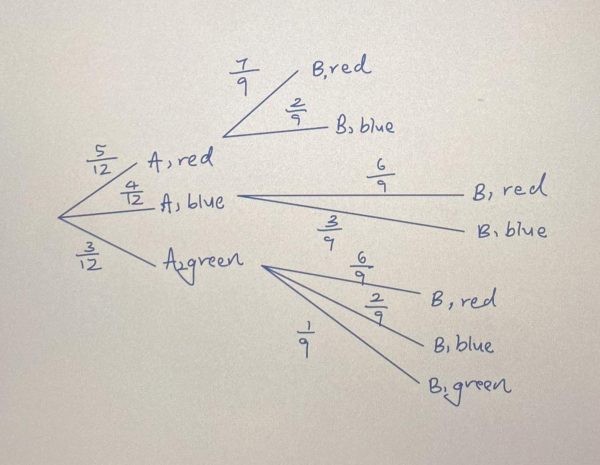 7/9 B, red
2/9 B, blue
5/12 A, red
4/12 A, blue
6/9 B, red
3/9 B, blue
3/12 A, green
6/9 B, red
2/9 B, blue
1/9 B, green